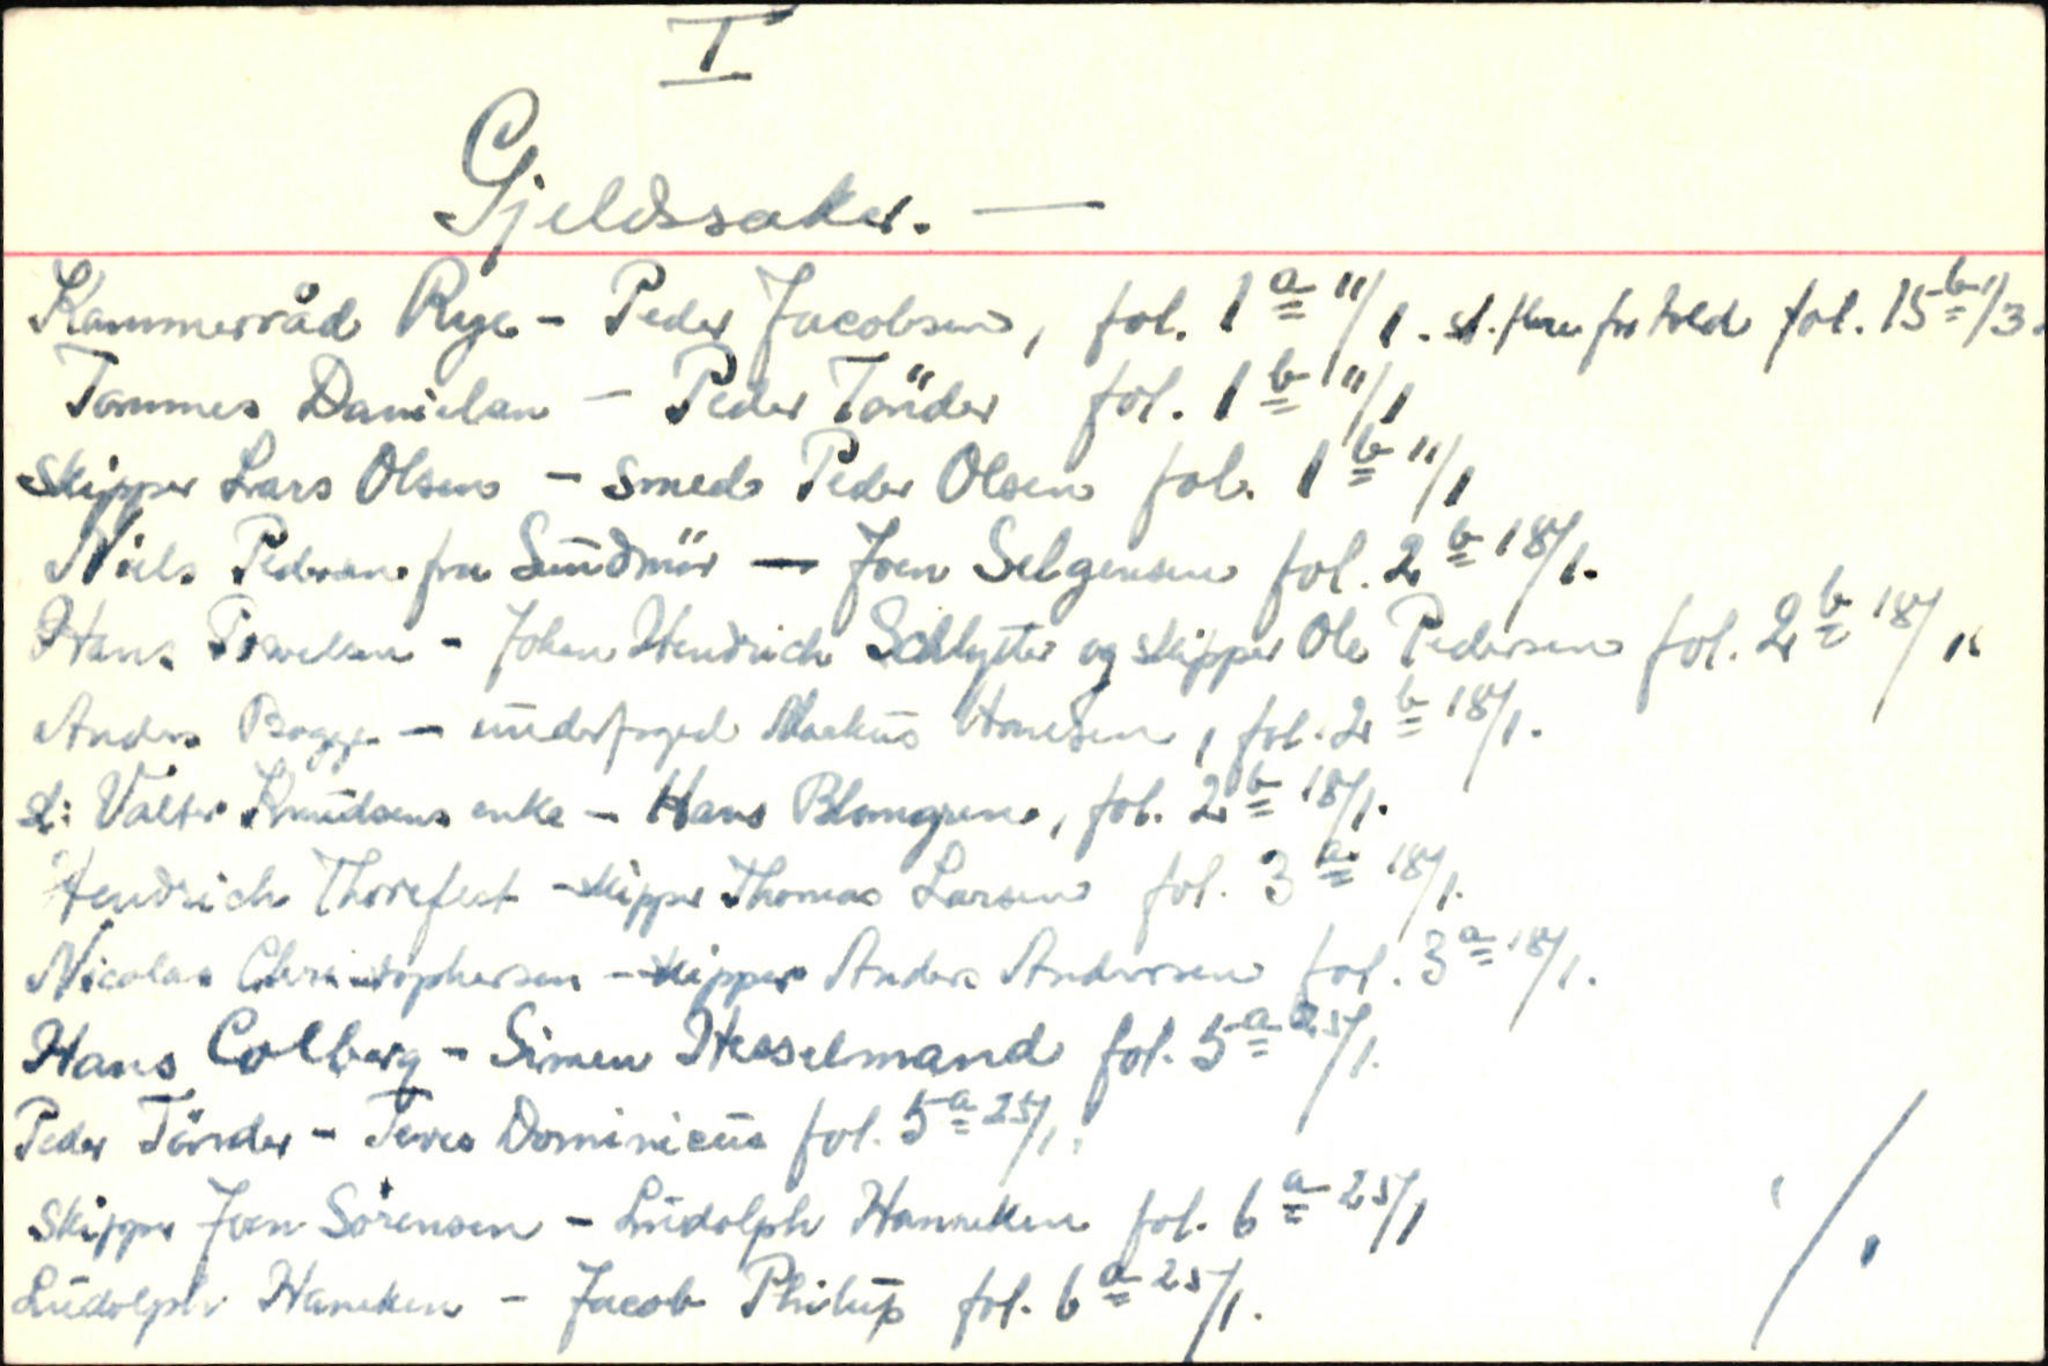 I
Gjeldssaker. —
Kammerråd Rye - Peder Jacobsen, fol. 1 a 11/1. fol. 15 b 1/3.
Tommes Danielsen - Peder Tönder fol. 1 b 11/1
Skipper Lars Olsen - smed Peder Olsen fol. 1 b 11/1
Niels Pedersen fra Sundmör — Joen Selgensen fol. 2 b 18/1.
Hans Powelsen - Johan Hendrich Schlytter og skipper Ole Pedersen fol. 2 b 18/1.
Anders Bagge - underfoged Markus Hansen, fol. 2 b 18/1.
sl: Valter Knudsens enke - Hans Blomgren, fol. 2 b 18/1.
Hendrich Thorefest - skipper Thomas Larsen fol. 3 a 18/1.
Nicolas Christophersen - skipper Anders Andersen fol. 3 a 18/1.
Hans Colberg - Simen Hesselmand fol. 5 a 25/1.
Peder Tönder - Teres Dominicus fol. 5 a 25/1.
Skipper Joen Sörensen - Ludolph Hanneken fol. 6 a 25/1
Ludolph Haneken - Jacob Philup fol. 6 a 25/1.
./.